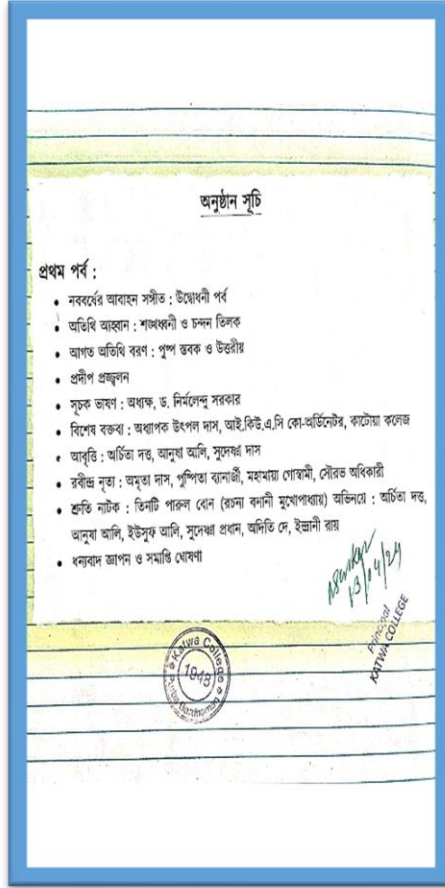 অনুষ্ঠান সূচি
প্রথম পর্ব :
• নববর্ষের আবাহন সঙ্গীত : উদ্বোধনী পর্ব
• অতিথি আহ্বান : শঙ্খধ্বনী ও চন্দন তিলক
• আগত অতিথি বরণ : পুষ্প স্তবক ও উত্তরীয়
• প্রদীপ প্রজ্জ্বলন
• সূচক ভাষণ : অধ্যক্ষ, ড. নির্মলেন্দু সরকার
• বিশেষ বক্তব্য : অধ্যাপক উৎপল দাস, আই.কিউ.এ.সি কো-অর্ডিনেটর, কাটোয়া কলেজ
• আবৃত্তি : অর্চিতা দত্ত, আনুষা আলি, সুদেষ্ণা দাস
• রবীন্দ্র নৃত্য : অমৃতা দাস, পুষ্পিতা ব্যানার্জী, মহামায়া গোস্বামী, সৌরভ অধিকারী
• শ্রুতি নাটক : তিনটি পারুল বোন (রচনা বনানী মুখোপাধ্যায়) অভিনয়ে : অর্চিতা দত্ত,
আনুষা আলি, ইউসুফ আলি, সুদেষ্ণা প্রধান, অদিতি দে, ইন্দ্রানী রায়
• ধন্যবাদ জ্ঞাপন ও সমাপ্তি ঘোষণা
13/04/24
Principal
KATWA COLLEGE
Katwa College
1948
Purba Bardhaman